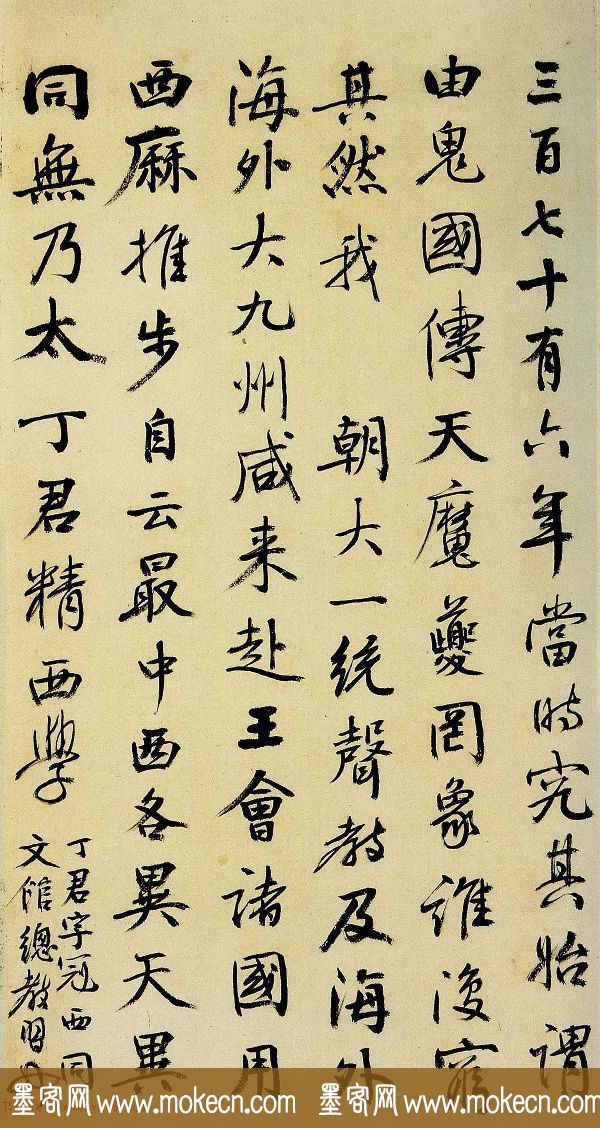 三百七十有六年當時究其始謂
由鬼國傳天魔夔罔象誰復窮
其然我 朝大一統聲教及海外
海外大九州咸来赴王會諸國用
西麻推步自云最中西各異天異
同無乃太丁君精西學
丁君字冠西同
文館總教習
墨客网 www.mokecn.com 墨客网 www.mokecn.com